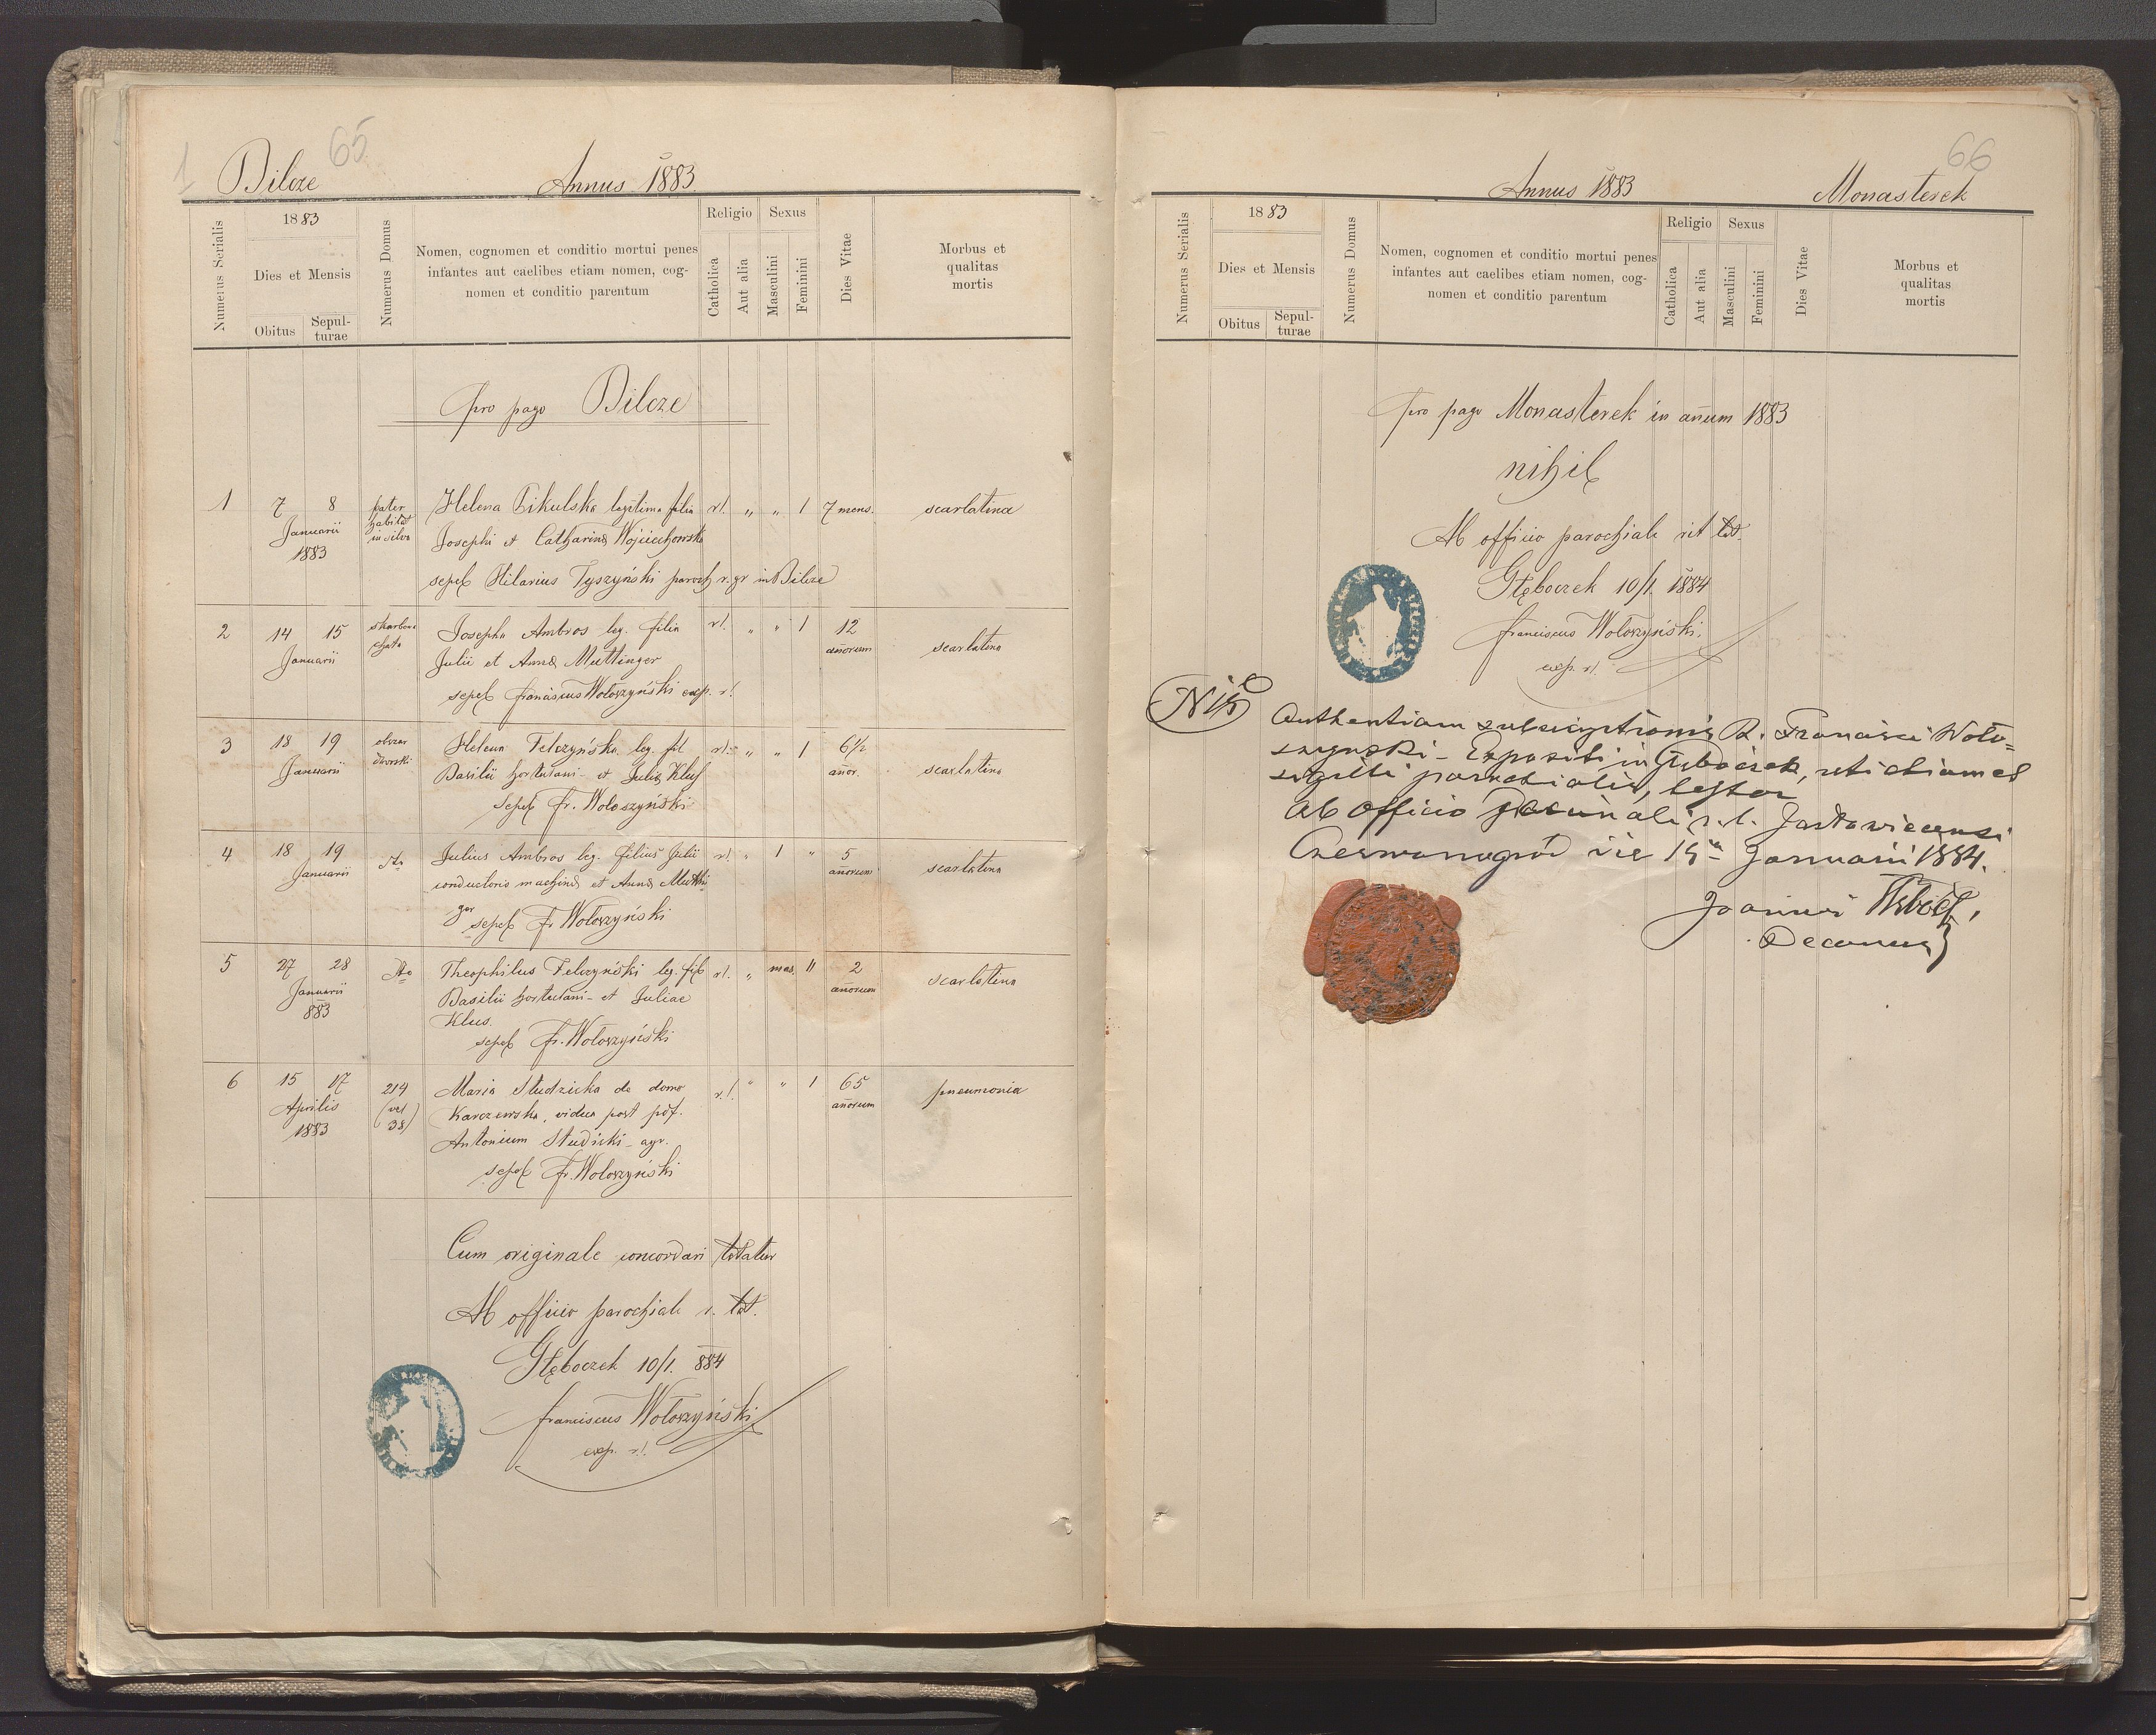 1 65
Bilcze Annus 1883
Numerus Serialis
1883
Dies et Mensis
Obitus
Sepul-
turae
Numerus Domus
Nomen, cognomen et conditio mortui penes
infantes aut caelibes etiam nomen, cog-
nomen et conditio parentum
Religio
Catholica
Aut alia
Sexus
Masculini
Feminini
Dies Vitae
Morbus et
qualitas
mortis
pro pago Bilcze
1 7 8 pater Helena Pikulska legitima filia r.l. " " 1 7 mens. scarlatina
Januarii habitat Josephi et Catharina Wojciechowska
1883 in silva
sepel Hilarius Tyszyński paroch r. gr in Bilcze
2 14 15 skarbowa Josepha Ambros leg. filia r.l. " " 1 12 scarlatina
Januarii chata Julii et Anna Muttinger anorum
sepel franciscus Wołoszyński exp. r.l.
3 18 19 obszar Helena Felczyńska leg. fil r.l. " " 1 6½ scarlatina
Januarii dworski Basilii hortulani et Julia Klus anor.
Sepel Fr. Wołoszyński
4 18 19 dto Julius Ambros leg. filius Julii r.l. " 1 " 5 scarlatina
Januarii conductoris machina et Anna Muttin anorum
ger sepel Fr Wołoszyński
5 27 28 dto Theophilus Felczyński leg. fil r.l. " mas. " 2 scarlatina
Januarii Basilii hortulani et Juliae anorum
883 Klus.
sepel Fr. Wołoszyński
6 15 17 214 Maria Studzicka de domo r.l. " " 1 65 pneumonia
Aprilis (vel Karczewska, vidua post pdf. anorum
1883 38) Antonium Studicki agr.
sepel Fr. Wołoszyński
Cum originale concordari testatur
Ab officio parochiale r. lat.
Głęboczek 10/1. 884
franciscus Wołoszyński
exp. r.l.
66
Annus 1883 Monasterek
Numerus Serialis
1883
Dies et Mensis
Obitus
Sepul-
turae
Numerus Domus
Nomen, cognomen et conditio mortui penes
infantes aut caelibes etiam nomen, cog-
nomen et conditio parentum
Religio
Catholica
Aut alia
Sexus
Masculini
Feminini
Dies Vitae
Morbus et
qualitas
mortis
pro pago Monasterek in anum 1883
nihil
Ab officio parochiale rit lat.
Głęboczek 10/1. 1884
franciscus Wołoszyński
exp. r.l.
Authentiam subscriptionis R. Francisci Woło=
szyński Expositi in Głęboczek, uti etiam et
sigilli parochialis, testor
Ab officio Decanali r. l. Jazłowiecensi
Czerwonogród die 15 Januarii 1884.
Joannes
Decanus